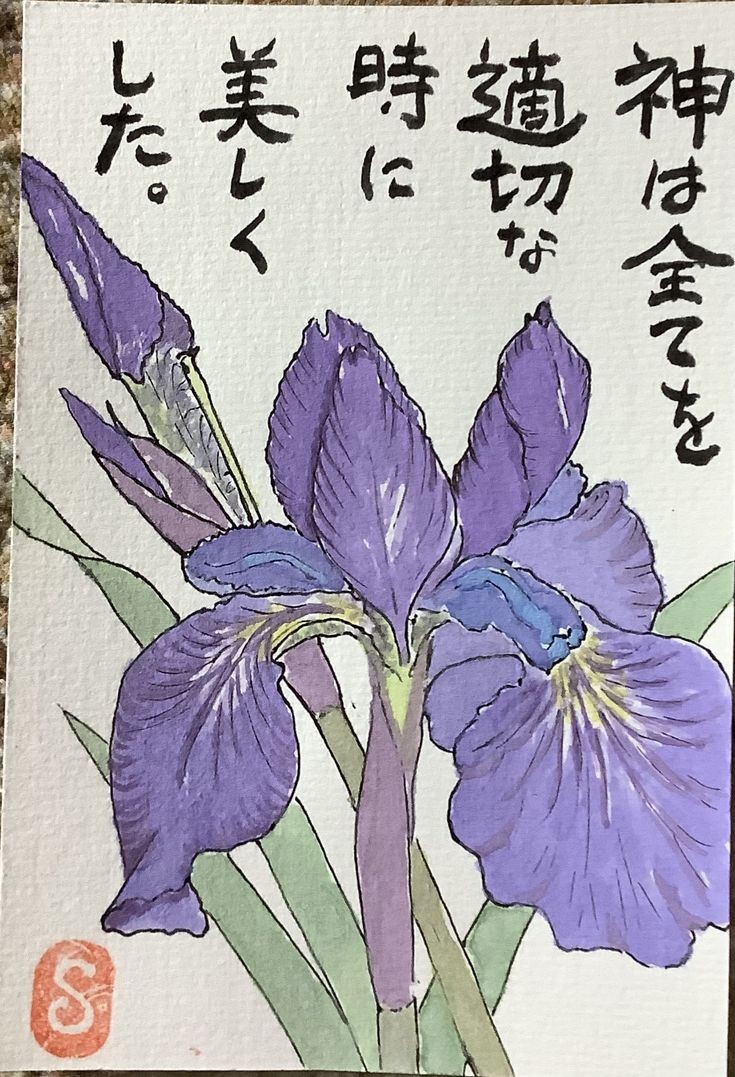 神は全てを
適切な
時に
美しく
した。
S